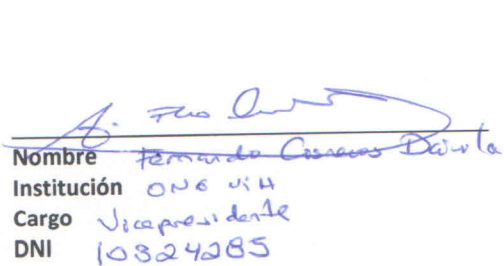 Nombre Fernando Cisneros Davila
Institución ONG VIH
Cargo Vicepresidente
DNI 10324285